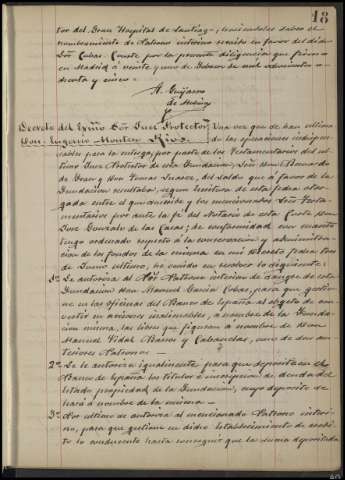 18
tor del Gran Hospital de Santiago; haciéndoles saber el
nombramiento de Patrono interino servido en favor del dicho
Sor Cubas. Conste por la presente diligencia que firmo
en Madrid á veinte y uno de Febrero de mil ochocientos n
oventa y cinco.-
A. Guijarro
Decreto del Exmo Sor Juez Protector,, Una vez que se han ultima
Don Eugenio Montero Ríos. do las operaciones indispen
sables para la entrega, por parte de los Testamentarios del úl
timo Juez Protector de esta Fundación, Don Bernardo
de y Don Tomás Suarez, del saldo que á favor de la
Fundación resultaba, según escritura de esta fecha otor
gada entre el que decide y los mencionados Sres Testa
mentarios por ante la fé del Notario de esta Corte Don
José Gonzalo de las Casas; de conformidad con cuanto
tengo ordenado respecto á la conservación y administra
ción de los fondos de la misma en mi Decreto fecha tres
de Enero último, he venido en resolver lo siguiente:
1º Se autoriza al Patrono interino de sangre de esta
Fundación Don Manuel García Cubas, para que gestio
ne en las oficinas del Banco de España al objeto de con
vertir en acciones inalienables, á nombre de la Funda
ción misma, las libres que figuran á nombre de Don
Manuel Vidal Ramos y Cabanelas, uno de sus an
teriores Patronos.-
2º Se le autoriza igualmente para que deposite en el
Banco de España los títulos é inscripción de deuda del
Estado propiedad de la Fundación; cuyo depósito se
hará á nombre de la misma.-
3º Por último se autoriza al mencionado Patrono interi
no, para que gestione en dicho establecimiento de crédi
to lo conducente hasta conseguir que la suma depositada